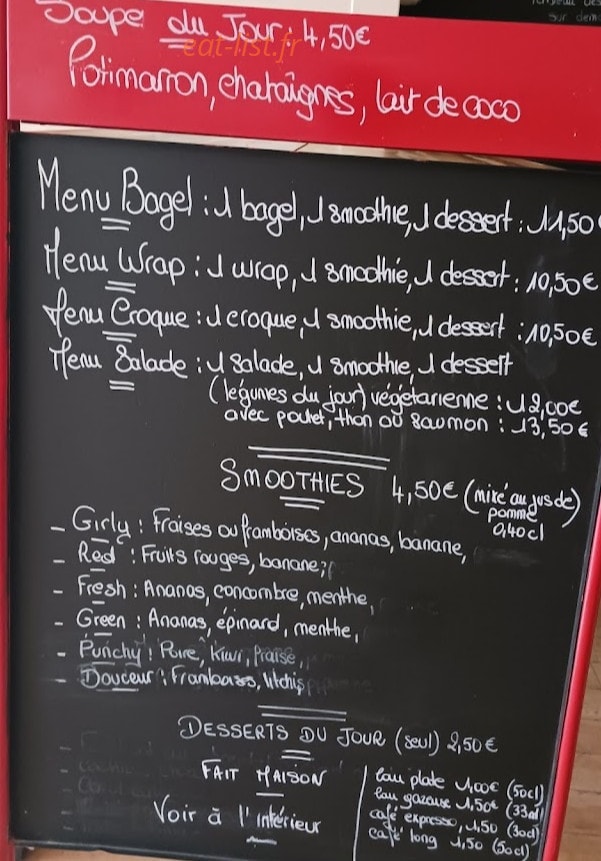 Soupe du Jour : 4,50€
eat-list.fr
Potimarron, chataîgnes, lait de coco
Menu Bagel : 1 bagel, 1 smoothie, 1 dessert : 11,50
Menu Wrap : 1 wrap, 1 smoothie, 1 dessert : 10,50€
Menu Croque : 1 croque, 1 smoothie, 1 dessert : 10,50€
Menu Salade : 1 salade, 1 smoothie, 1 dessert
(légumes du jour) végétarienne : 12,00€
avec poulet, thon ou saumon : 13,50€
SMOOTHIES 4,50€ (mixé au jus de
pomme)
0,40cl
- Girly : Fraises ou framboises, ananas, banane,
- Red : Fruits rouges, banane,
- Fresh : Ananas, concombre, menthe,
- Green : Ananas, épinard, menthe,
- Punchy : Poire, Kiwi, fraise,
- Douceur : Framboises, litchis
DESSERTS DU JOUR (seul) 2,50€
FAIT MAISON
Voir à l'intérieur
Eau plate 1,00€ (50cl)
Eau gazeuse 1,50€ (33cl)
café expresso, 1,50 (30cl)
café long 1,50 (50cl)